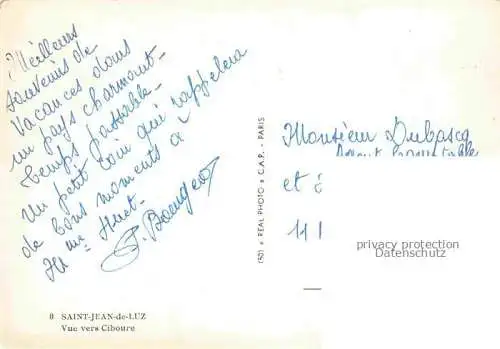 Meilleurs
souvenirs de
Vacances dans
un pays charmant-
temps passable-
Un petit coin qui rappelera
de bons moments à
Me Huet-
(50) • REAL PHOTO • C.A.P. - PARIS
Monsieur Dubascq
Agent
et
11
privacy protection
Datenschutz
8 SAINT-JEAN-de-LUZ
Vue vers Ciboure